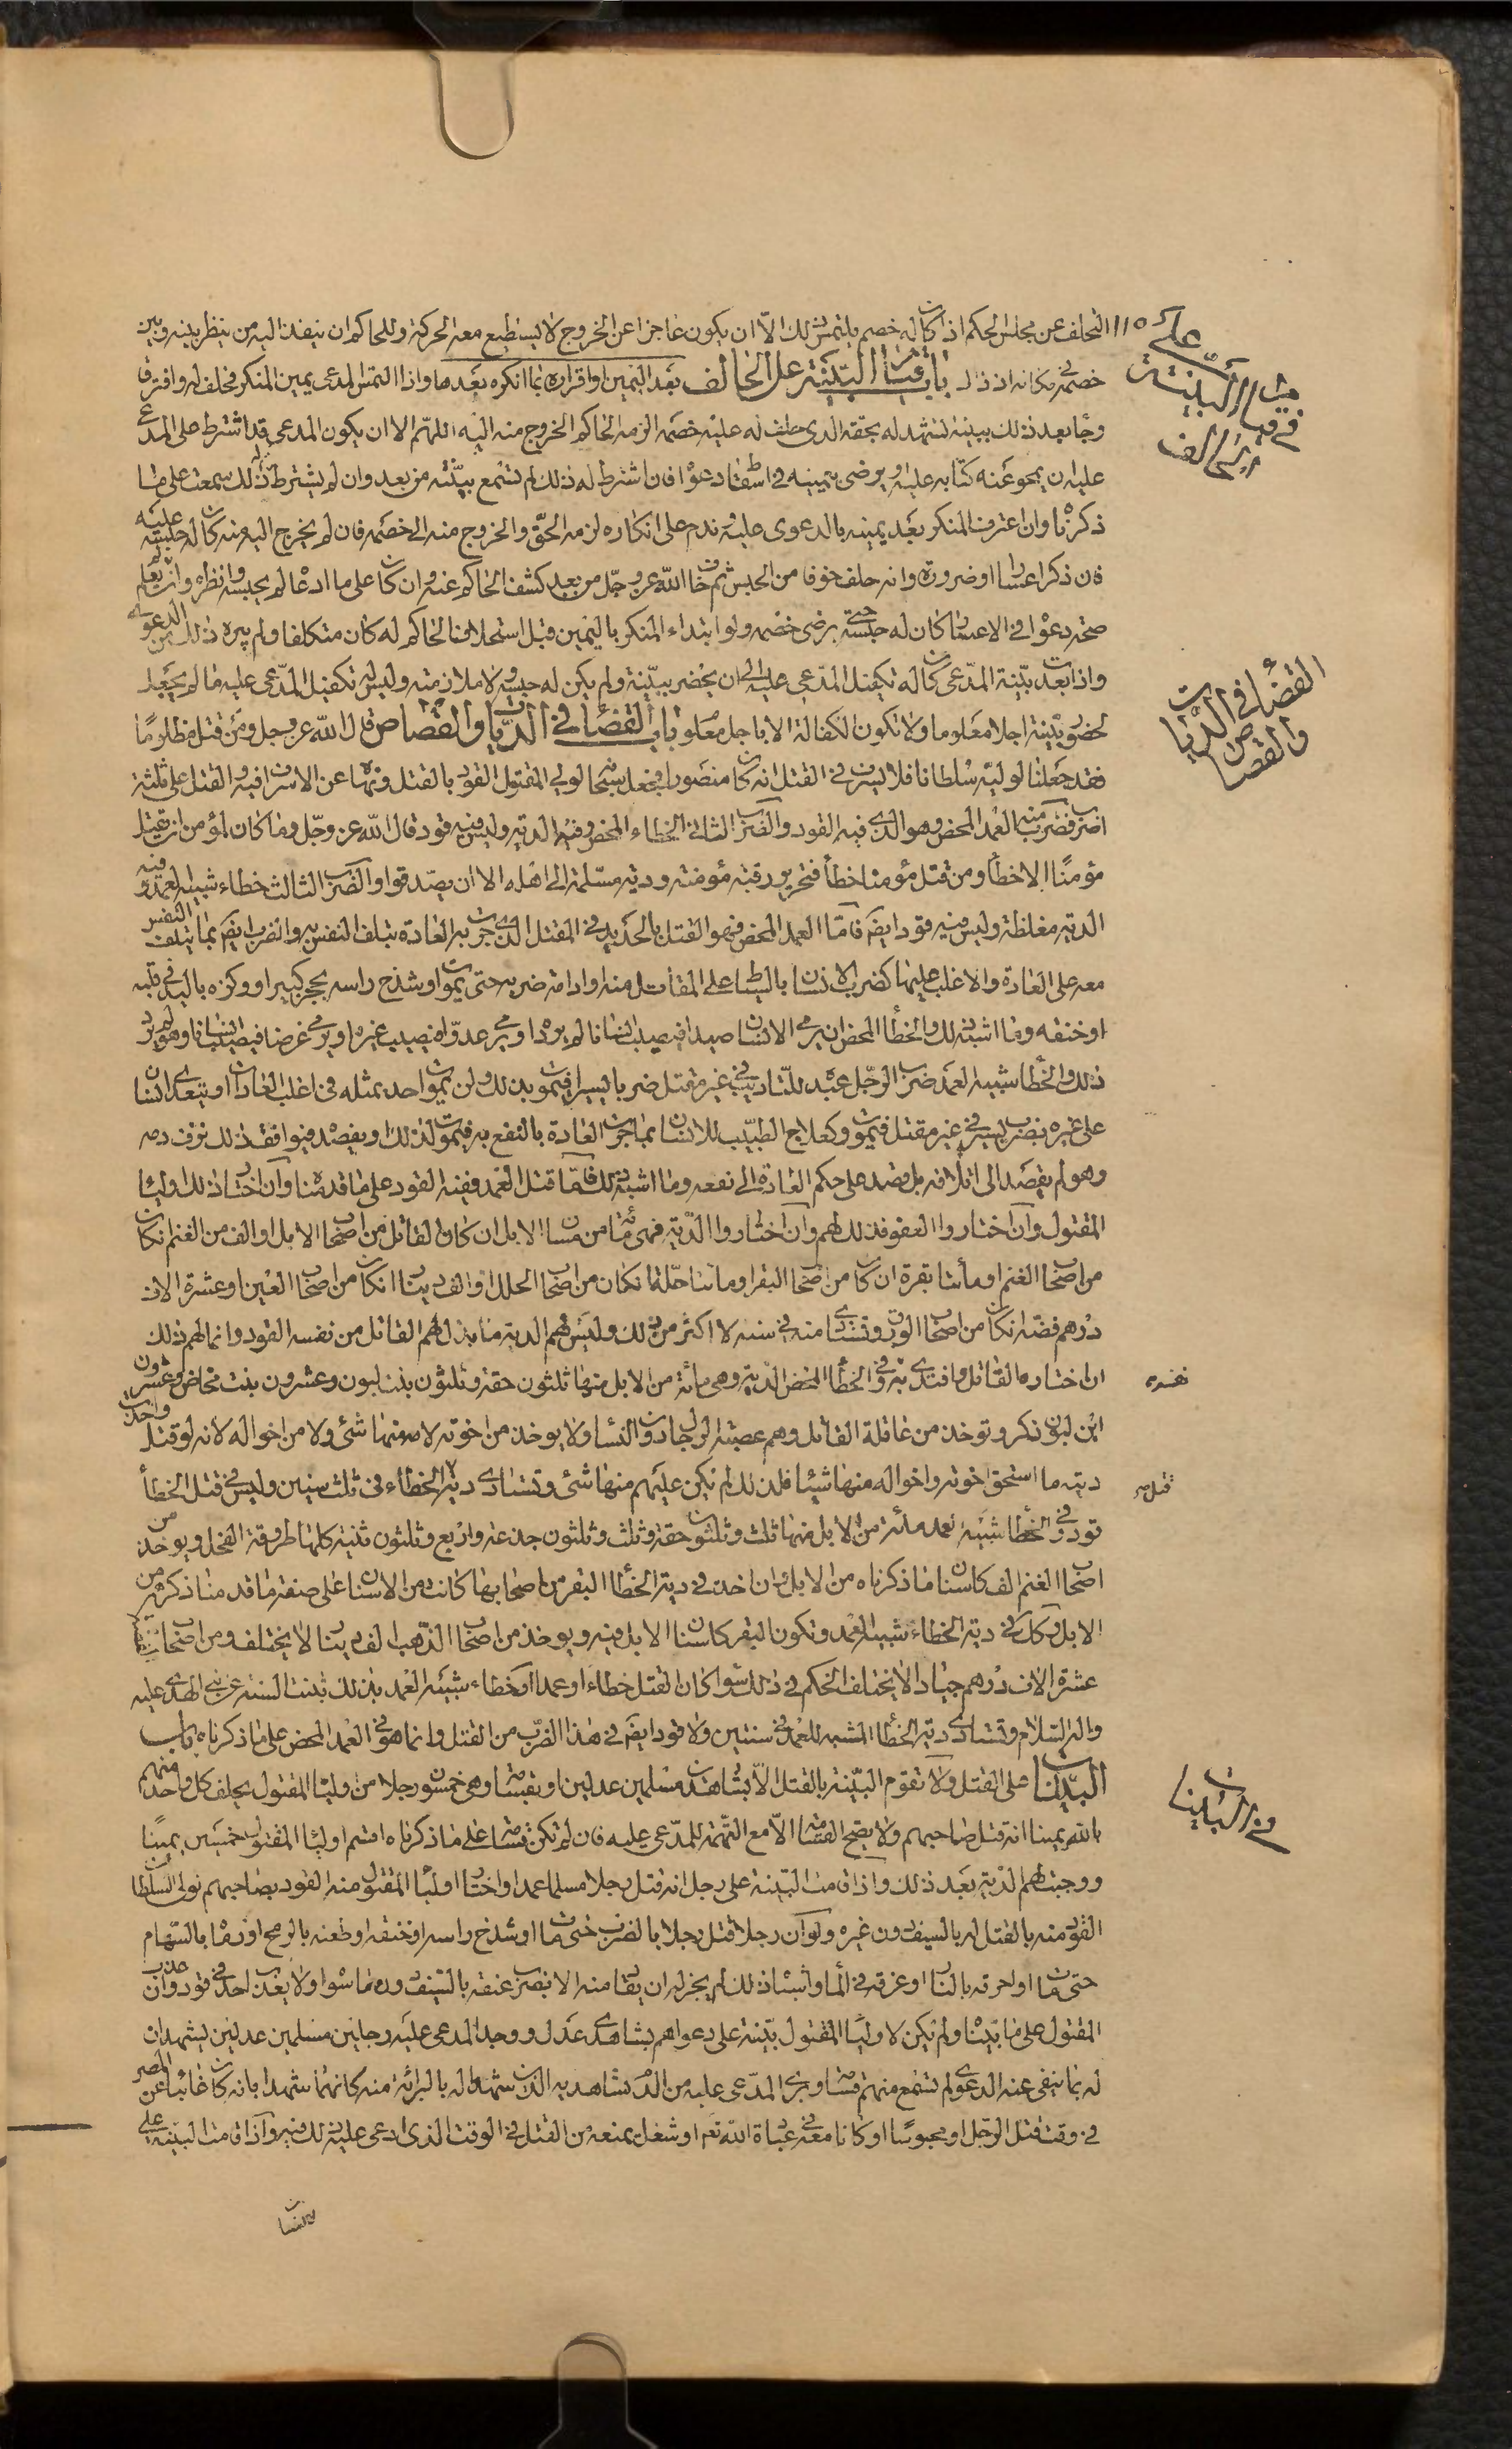 التخلف عن مجلس الحكم اذا كان له خصم يلتمس ذلك الّا ان يكون عاجزا عن الخروج لا يستطيع معه الحركة وللحاكم ان ينفذ اليه من ينظر بينه وبين
خصمه في مكانه اذ ذاك باب قيام البيّنة على الحالف بعد اليمين او اقراره بما انكره بعدها واذا التمس المدعى يمين المنكر فحلف له وافترقا
وجاء بعد ذلك ببينة تشهد له بحقه الذى حلف له عليه خصمه الزمه الحاكم الخروج منه اليه اللهمّ الا ان يكون المدعى قد اشترط على المدعى
عليه ان يمحو عنه كتابه عليه ويرضى بيمينه في اسقاط دعواه فان اشترط له ذلك لم تسمع بيّنته من بعد وان لم يشترط ذلك سمعت على ما
ذكرناه وان اعترف المنكر بعد يمينه بالدعوى عليه وندم على انكاره لزمه الحقّ والخروج منه الى خصمه فان لم يخرج اليه منه كان له حبسه عليه
فان ذكر اعسارا وضرورة وانه حلف خوفا من الحبس ثم خاف الله عزوجلّ من بعد كشف الحاكم عنه وان كان على ما ادعاه لم يحبسه وانظره وان لم يعلم
صحة دعواه في الاعسار كان له حبسه حتى يرضى خصمه ولو ابتداء المنكر باليمين قبل استحلاف الحاكم له كان متكلفا ولم يبره ذلك من الدعوى
واذا بعدت بيّنة المدّعى كان له تكفيل المدّعى عليه الى ان يحضر بيّنة ولم يكن له حبسه ولا ملازمته وليس له تكفيل المدّعى عليه ما لم يجعل
لحضور بيّنته اجلا معلوما ولا تكون الكفالة الا باجل معلوم باب القضاء في الديات والقصاص قال الله عزوجل ومن قتل مظلومًا
فقد جعلنا لوليّه سلطانا فلا يسرف في القتل انه كان منصورا فجعل سبحانه لولي المقتول القود بالقتل ونهاه عن الاسراف فيه والقتل على ثلثة
اضرب فضرب منه العمد المحض وهو الذى فيه القود والضرب الثاني الخطاء المحض وفيه الدية وليس فيه قود قال الله عزوجلّ وما كان لمؤمن ان يقتل
مؤمنًا الا خطأ ومن قتل مؤمنا خطأ فتحرير رقبة مؤمنة ودية مسلّمة الى اهله الا ان يصّدقوا والضرب الثالث خطاء شبيه العمد وفيه
الدية مغلظة وليس فيه قود ايضم فامّا العمد المحض فهو القتل بالحديد في المقتل الذى جرت به العادة بتلف النفس به والضرب ايضم بما يتلف النفس
معه على العادة والاغلب عليها كضرب الانسان بالسياط على المقاتل منه او ادامة ضربه حتى يموت او شدخ راسه بحجر كبير او وكزه باليد في قلبه
او خنقه وما اشبه ذلك والخطأ المحض ان يرمى الانسان صيدا فيصيب انسانا لم يرده او يرمى عدوّا فيصيب غيره او يرمى غرضا فيصيب انسانا وهو لم يرد
ذلك والخطأ شبيه العمد ضرب الرجل عبده للتاديب في غير مقتل ضربا يسيرا فيموت بذلك ولن يموت احد بمثله في اغلب العادات او يتعدى انسان
على غيره بضرب يسير في غير مقتل فيموت وكعلاج الطبيب للانسان بما جرت العادة بالنفع به فيموت لذلك او يفصده فيوافق ذلك نزف دمه
وهو لم يقصد الى اتلافه بل قصد على حكم العادة الى نفعه وما اشبه ذلك فامّا قتل العمد ففيه القود على ما قدمناه ان اختار ذلك اولياء
المقتول وان اختاروا العفو فذلك لهم وان اختاروا الدّية فهى مائة من مسان الابل ان كان القاتل من اصحاب الابل او الف من الغنم ان كان
من اصحاب الغنم او مأتا بقرة ان كان من اصحاب البقر او مائتا حلّة ان كان من اصحاب الحلل او الف دينار ان كان من اصحاب العين او عشرة الاف
درهم فضة ان كان من اصحاب الورق وتستادى منه في سنه لا اكثر من ذلك وليس لهم الدية ما بذل لهم القاتل من نفسه القود وانما لهم ذلك
ان اختاره القاتل وافتدى به وفي الخطأ المحض الدّية وهى مائة من الابل منها ثلثون حقة وثلثون بنت لبون وعشرون بنت مخاض وعشرون
ابن لبون ذكر وتوخذ من عاقلة القاتل وهم عصبته الرجال دون النساء ولا يوخذ من اخوته لامه منها شئ ولا من اخواله لانه لو قتل واخذت
ديته ما استحق اخوته واخواله منها شيئا فلذلك لم يكن عليهم منها شئ وتستادى دية الخطاء في ثلث سنين وليس في قتل الخطأ
قود وفي الخطأ شبيه العمد مائة من الابل منها ثلث وثلثون حقة وثلث وثلثون جذعة واربع وثلثون ثنية كلها طروقة الفحل ويوخذ من
اصحاب الغنم الف كاسنان ما ذكرناه من الابل وان اخذت في دية الخطأ البقر من اصحابها كانت من الاسنان على صفة ما قدمنا ذكره من
الابل وكذلك في دية الخطاء شبيه العمد وتكون البقر كاسنان الابل فيه ويوخذ من اصحاب الذهب الف دينار لا يختلف ومن اصحاب
عشرة الاف درهم جيادا لا يختلف الحكم في ذلك سواء كان القتل خطاء او عمدا او خطاء شبيه العمد بذلك ثبتت السنه عن نبي الهدى عليه
واله السلام وتستادى دية الخطأ المشبه للعمد في سنتين ولا قود ايضم في هذا الضرب من القتل وانما هو في العمد المحض على ما ذكرناه باب
البيّنات على القتل ولا تقوم البيّنة بالقتل الّا بشاهدين مسلمين عدلين او بقسامة وهى خمسون رجلا من اولياء المقتول يحلف كل واحد منهم
بالله يمينا انه قتل صاحبهم ولا يصح القسامة الاّ مع التهمة للمدّعى عليه فان لم تكن قسامة على ما ذكرناه اقسم اولياء المقتول خمسين يمينًا
ووجبت لهم الدّية بعد ذلك واذا قامت البيّنة على رجل انه قتل رجلا مسلما عمدا واختار اولياء المقتول منه القود بصاحبهم تولى السلطان
القود منه بالقتل له بالسيف دون غيره ولو ان رجلا قتل رجلا بالضرب حتى مات او شدخ راسه او خنقه او طعنه بالرمح او رماه بالسّهام
حتى مات او احرقه بالنار او غرقه في الماء واشباه ذلك لم يجز له ان يقاد منه الا بضرب عنقه بالسّيف دون ما سواه ولا يعذب احد في قود وان عذب
المقتول على ما بيّناه ولم يكن لاولياء المقتول بيّنة على دعواهم بشاهدى عدل ووجد المدعى عليه رجلين مسلمين عدلين يشهدان
له بما ينفى عنه الدعوى لم تسمع منهم قسامة وبرئ المدّعى عليه من الدم بشاهديه الذين شهدا له بالبرائة منه كانهما شهدا بانه كان غائبا عن المصر
في وقت قتل الرّجل او محبوسًا او كانا معه في عبادة الله تعم او شغل يمنعه من القتل في الوقت الذى ادعى عليه ذلك فيه واذا قامت البيّنة على
115
في قيام البيّنة على
الحالف
القضاء في الديات
والقصاص
نفسه
قتل
في البيّنات